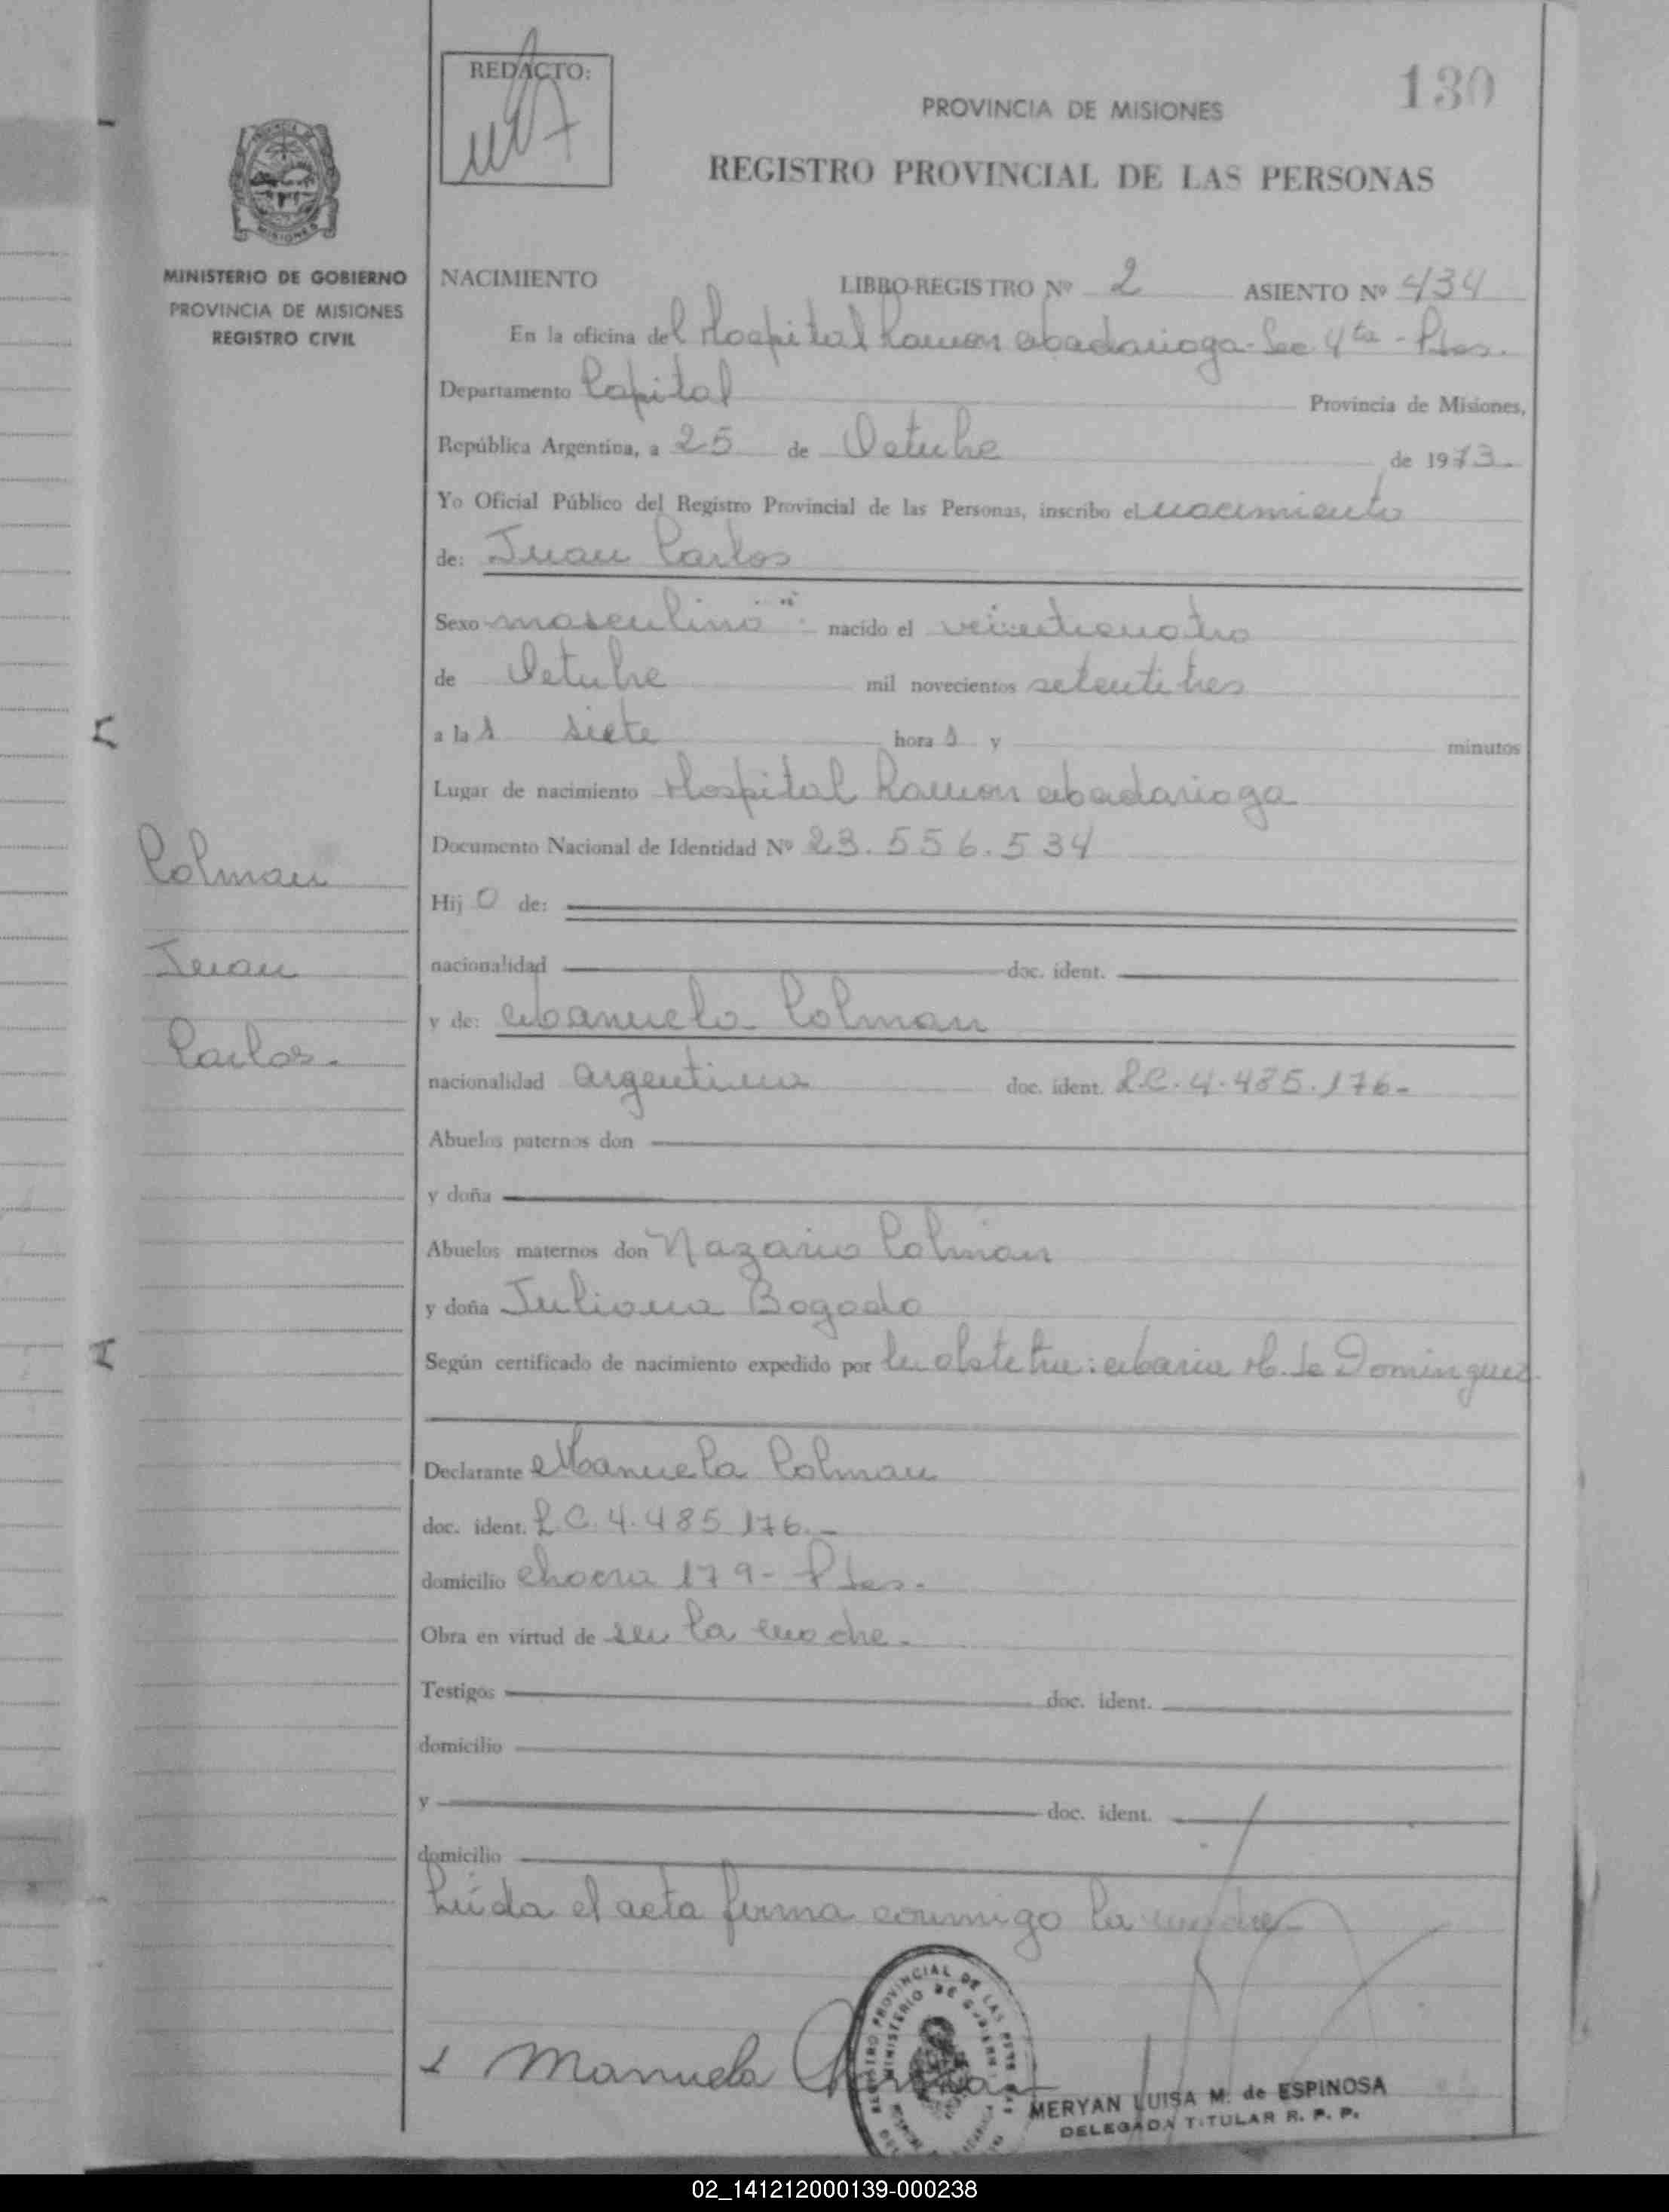 REDACTO:
130
PROVINCIA DE MISIONES
REGISTRO PROVINCIAL DE LAS PERSONAS
MISIONES
MINISTERIO DE GOBIERNO
PROVINCIA DE MISIONES
REGISTRO CIVIL
NACIMIENTO LIBRO-REGISTRO Nº 2 ASIENTO Nº 434
En la oficina del Hospital Ramon Madariaga - Sec. 4ta - Pdas.
Departamento Capital Provincia de Misiones,
República Argentina, a 25 de Octubre de 1973.
Yo Oficial Público del Registro Provincial de las Personas, inscribo el nacimiento
de: Juan Carlos
Sexo masculino nacido el veinticuatro
de Octubre mil novecientos setentitres
a las siete horas y minutos
Lugar de nacimiento Hospital Ramon Madariaga
Documento Nacional de Identidad Nº 23.556.534
Hijo de:
nacionalidad doc. ident.
y de: Manuela Colman
nacionalidad argentina doc. ident. L.C. 4.485.176-
Abuelos paternos don
y doña
Abuelos maternos don Nazario Colman
y doña Juliana Bogado
Según certificado de nacimiento expedido por la obstetra: Maria H. de Dominguez
Declarante Manuela Colman
doc. ident. L.C. 4.485.176.-
domicilio chacra 179 - Pdas.
Obra en virtud de ser la madre.
Testigos doc. ident.
domicilio
y doc. ident.
domicilio
Leída el acta firma conmigo la madre
Colman
Juan
Carlos.
Manuela Colman
REGISTRO PROVINCIAL DE LAS PERSONAS
MINISTERIO DE GOBIERNO
MERYAN LUISA M. de ESPINOSA
DELEGADA TITULAR R. P. P.
02_141212000139-000238